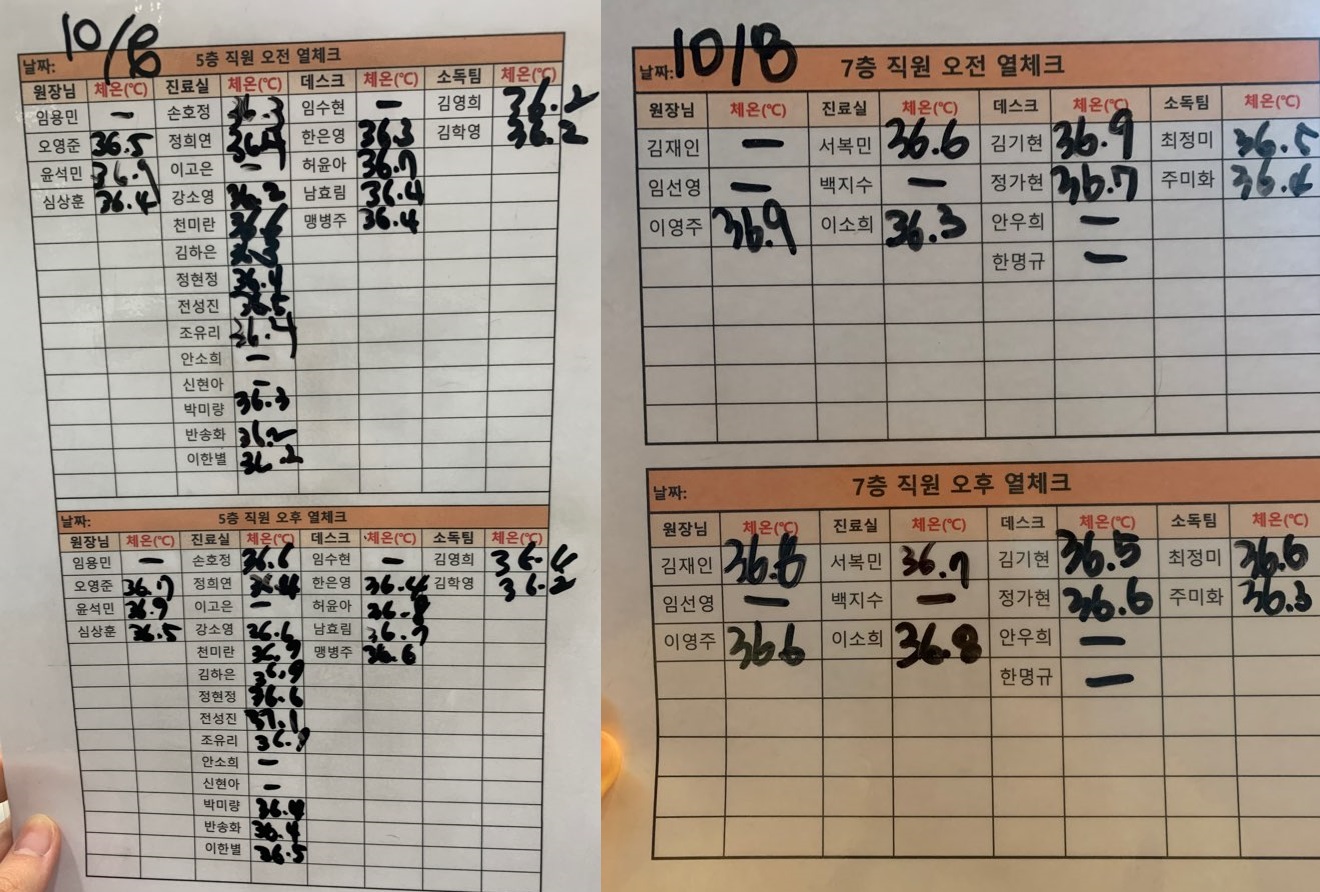 10/8
날짜: 5층 직원 오전 열체크
원장님 체온(℃) 진료실 체온(℃) 데스크 체온(℃) 소독팀 체온(℃)
임용민 - 손호정 36.3 임수현 - 김영희 36.2
오영준 36.5 정희연 한은영 36.3 김학영 36.2
윤석민 이고은 - 허윤아 36.7
심상훈 36.4 강소영 36.2 남효림 36.4
천미란 36.6 맹병주 36.4
김하은 36.3
정현정 36.4
전성진 36.5
조유리 36.4
안소희 -
신현아 -
박미량 36.3
반송화 36.2
이한별 36.2
날짜: 5층 직원 오후 열체크
원장님 체온(℃) 진료실 체온(℃) 데스크 체온(℃) 소독팀 체온(℃)
임용민 - 손호정 36.6 임수현 - 김영희
오영준 36.7 정희연 36.4 한은영 36.4 김학영 36.2
윤석민 36.9 이고은 - 허윤아
심상훈 36.5 강소영 36.6 남효림 36.7
천미란 36.7 맹병주 36.6
김하은 36.9
정현정 36.6
전성진 37.1
조유리
안소희 -
신현아 -
박미량 36.4
반송화 36.4
이한별 36.5
날짜: 10/8 7층 직원 오전 열체크
원장님 체온(℃) 진료실 체온(℃) 데스크 체온(℃) 소독팀 체온(℃)
김재인 - 서복민 36.6 김기현 36.9 최정미 36.5
임선영 - 백지수 - 정가현 36.7 주미화
이영주 36.9 이소희 36.3 안우희 -
한명규 -
날짜: 7층 직원 오후 열체크
원장님 체온(℃) 진료실 체온(℃) 데스크 체온(℃) 소독팀 체온(℃)
김재인 36.8 서복민 36.7 김기현 36.5 최정미 36.6
임선영 - 백지수 - 정가현 36.6 주미화 36.3
이영주 36.6 이소희 36.8 안우희 -
한명규 -